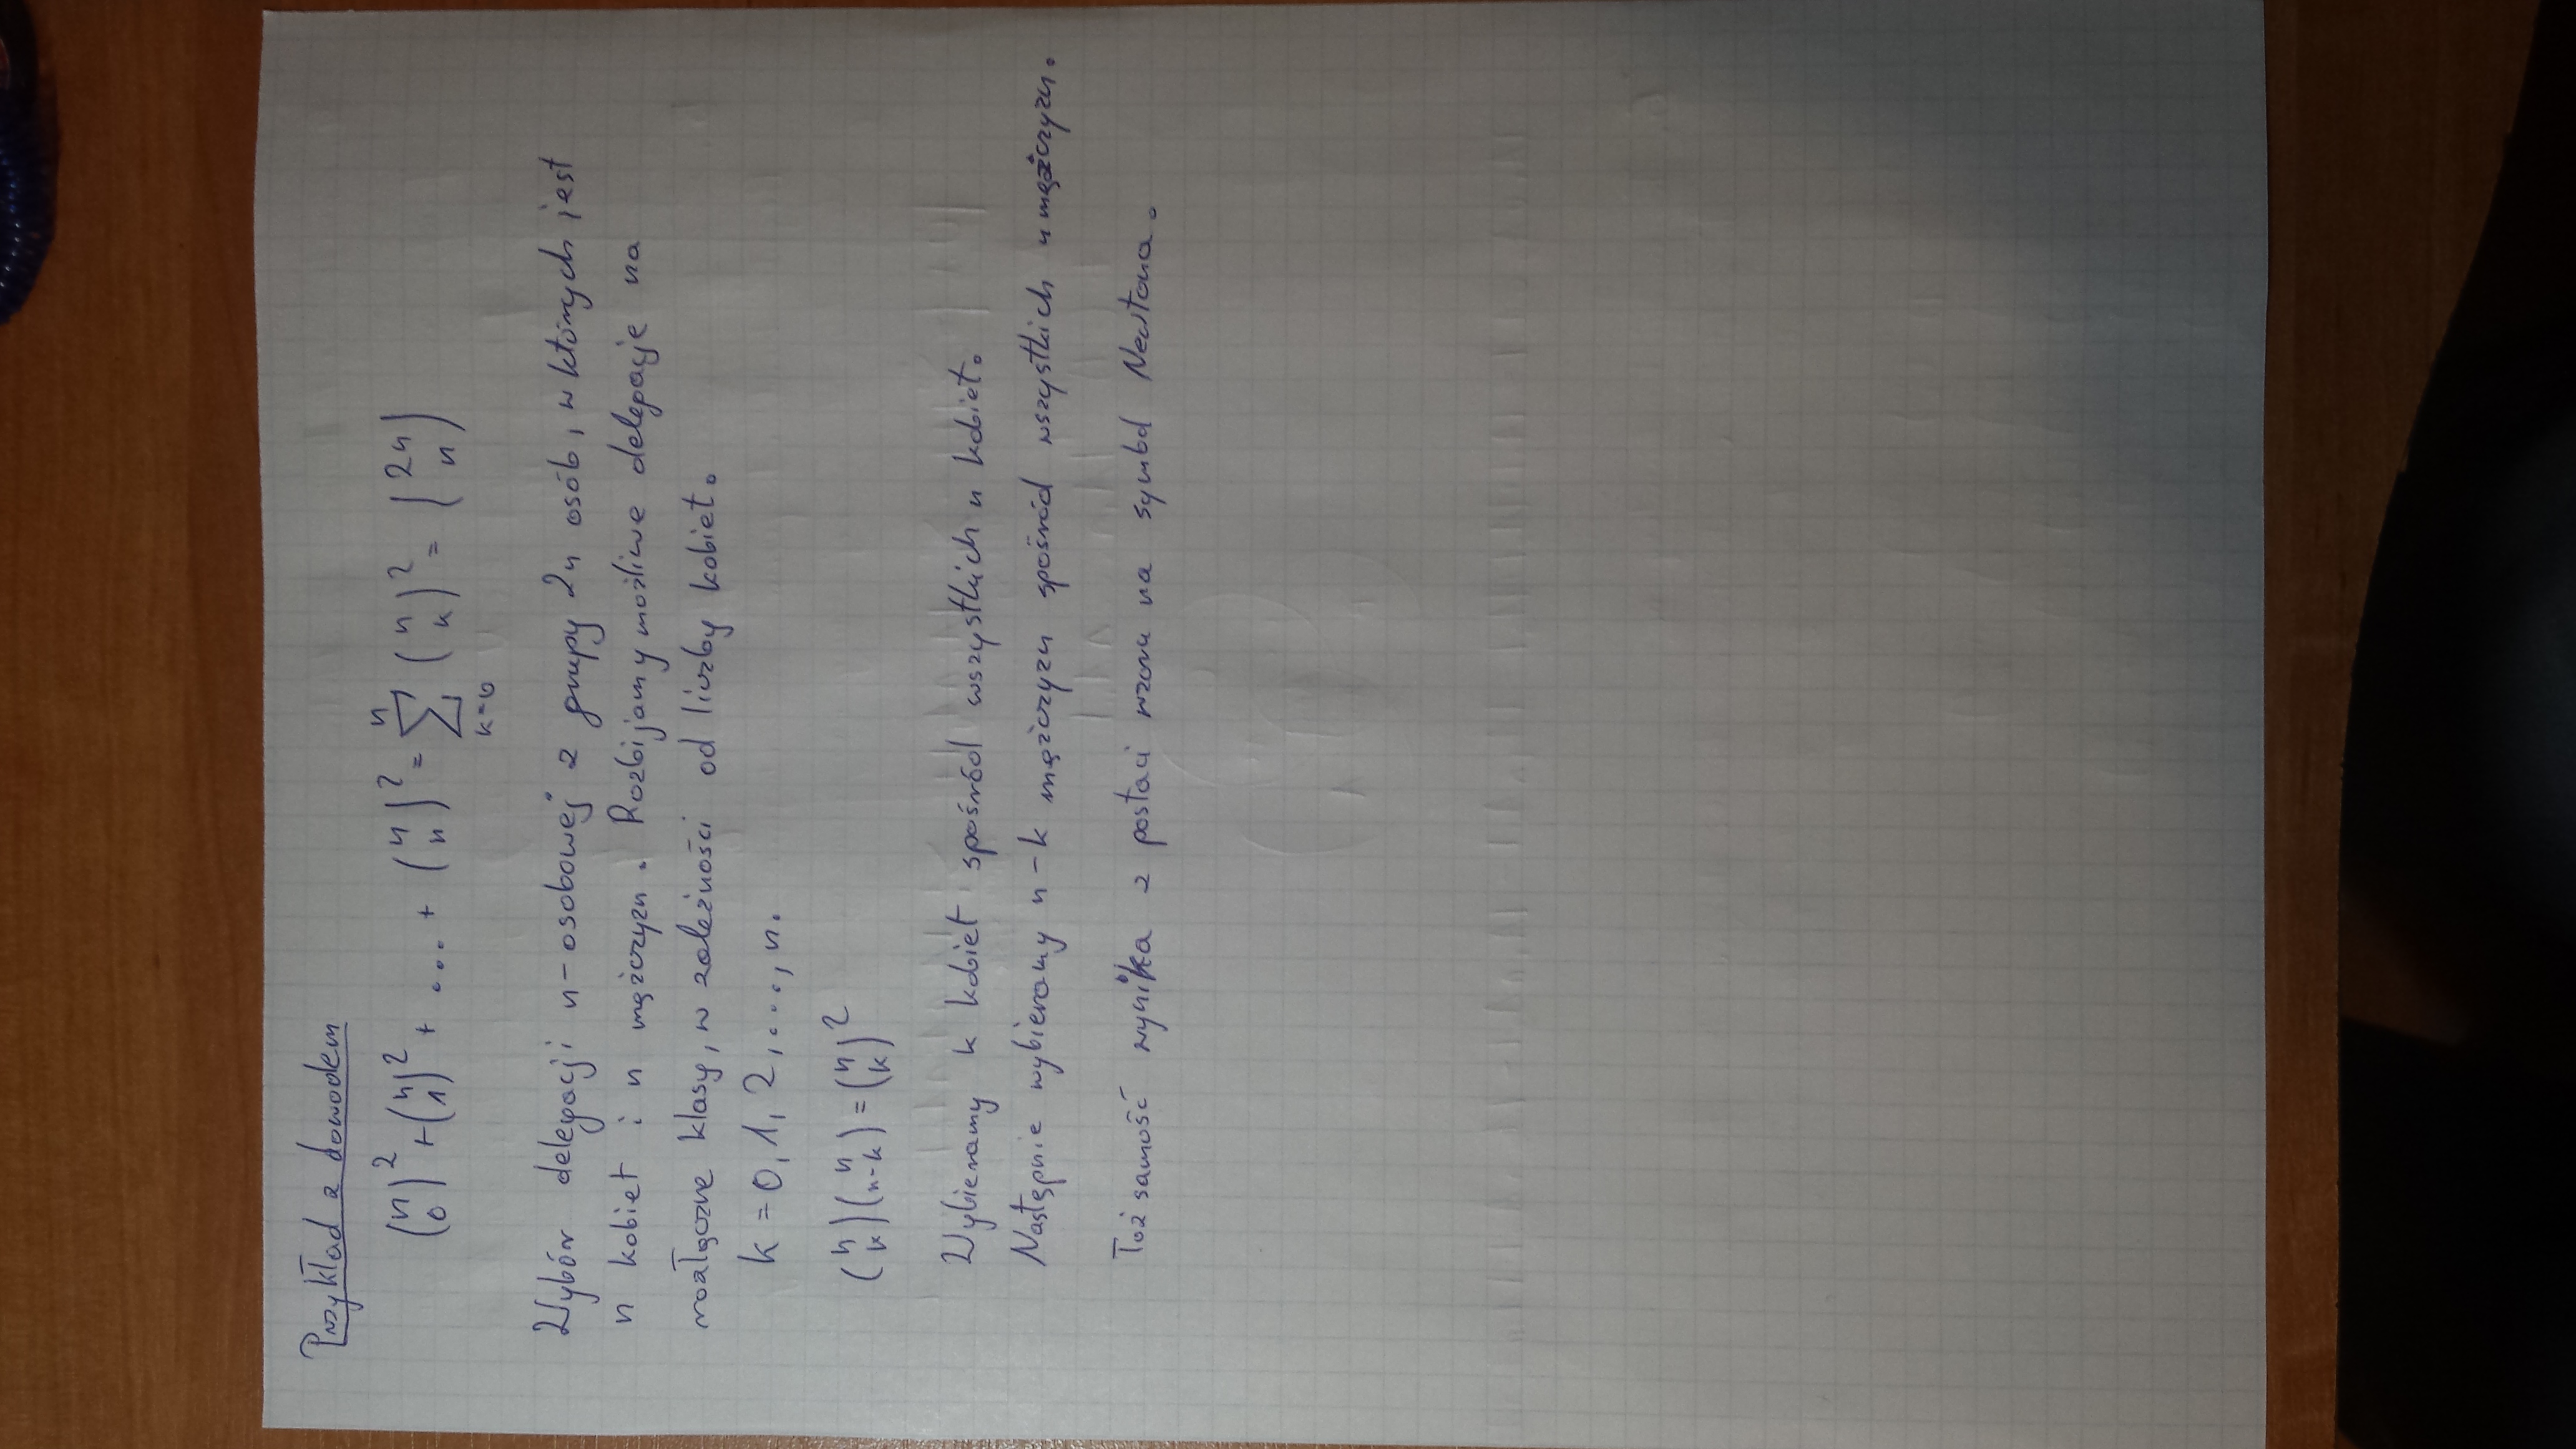 Przykład z dowodem
(n 0)² + (n 1)² + ... + (n n)² = ∑_{k=0}^{n} (n k)² = (2n n)
Wybór delegacji n-osobowej z grupy 2n osób, w których jest
n kobiet i n mężczyzn. Rozbijamy możliwe delegacje na
rozłączne klasy, w zależności od liczby kobiet.
k = 0, 1, 2, ..., n.
(n k)(n n-k) = (n k)²
Wybieramy k kobiet spośród wszystkich n kobiet.
Następnie wybieramy n-k mężczyzn spośród wszystkich n mężczyzn.
Tożsamość wynika z postaci wzoru na symbol Newtona.